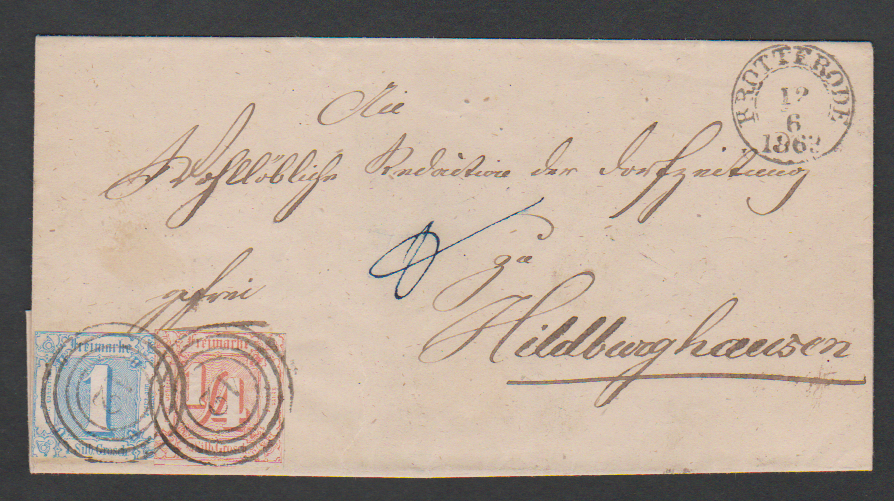 BROTTERODE
12
6
1863
An die
Wohllöbliche Redaction der Dorfzeitung
zu
frei
Hildburghausen
Freimarke
1
Silb. Grosch.
Freimarke
1/4
Silb. Grosch.